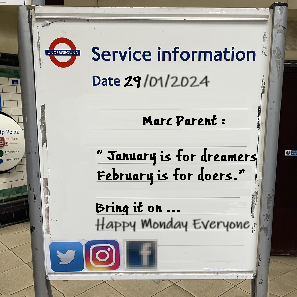 UNDERGROUND
Service information
Date 29/01/2024
Marc Parent :
" January is for dreamers
February is for doers."
Bring it on ...
Happy Monday Everyone